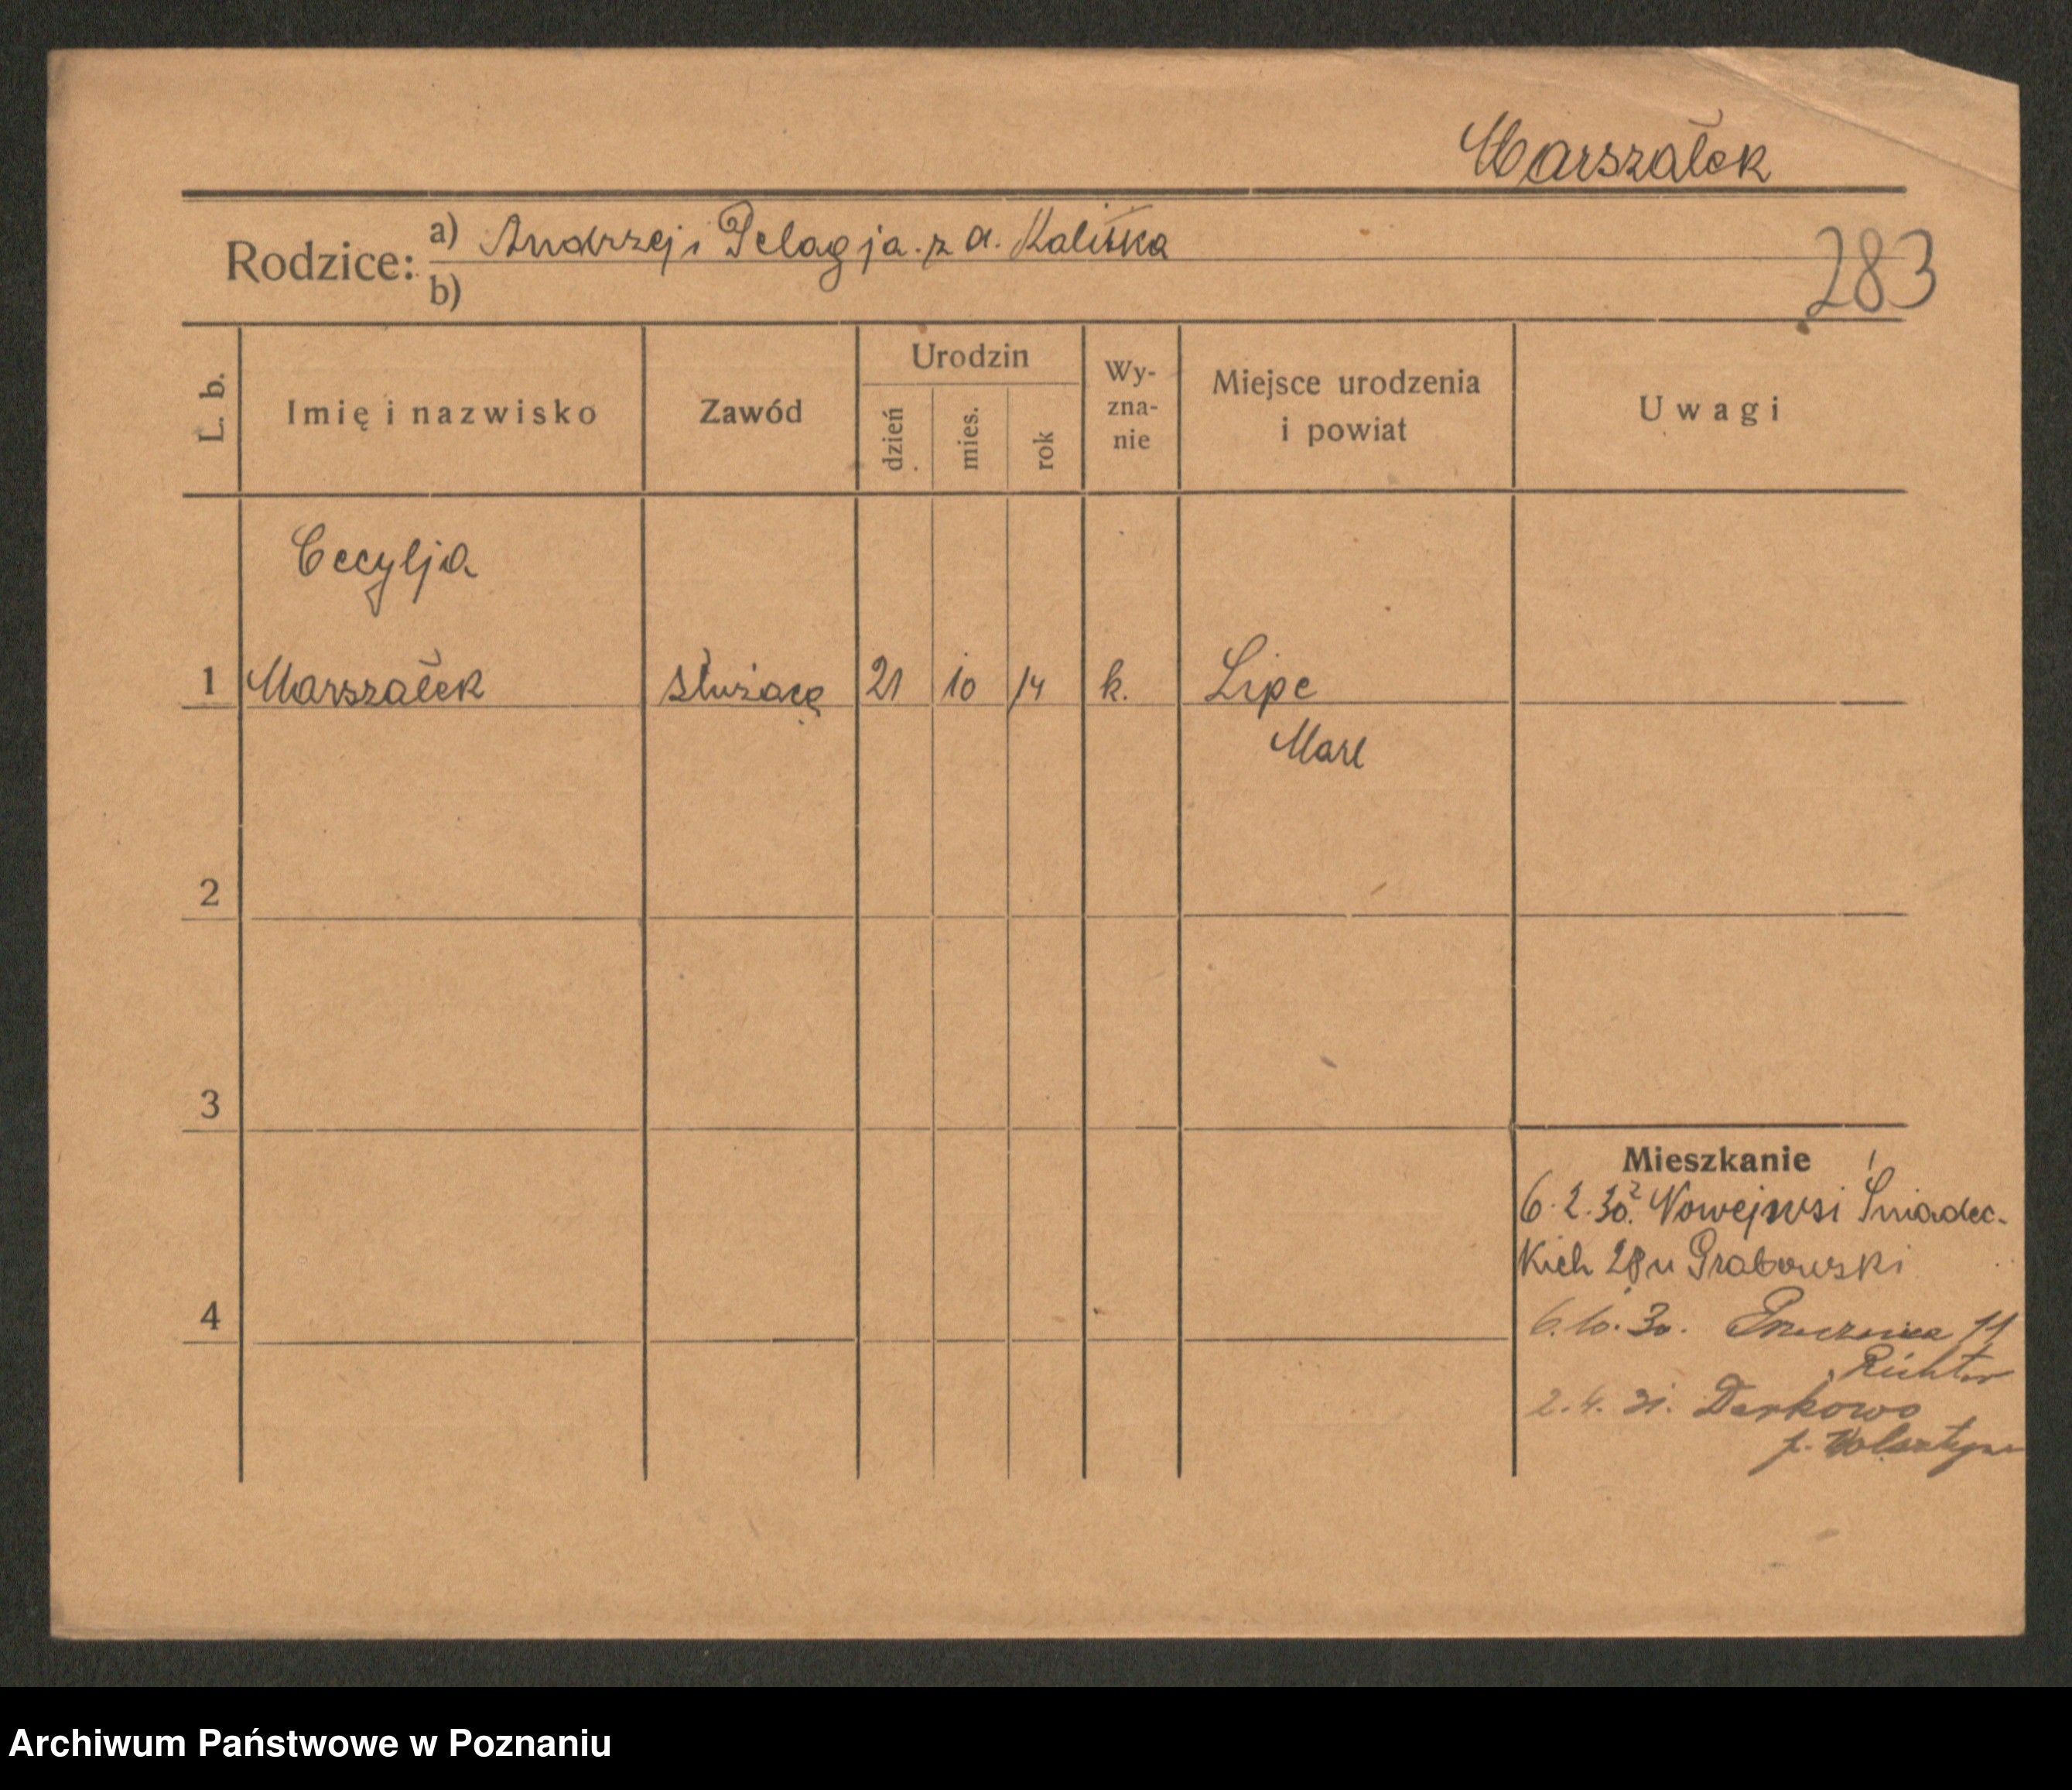 Marszałek
Rodzice: a) Andrzej i Pelagja. z d. Kaliska
b)
283
L. b.
Imię i nazwisko
Zawód
Urodzin
dzień
mies.
rok
Wy-
zna-
nie
Miejsce urodzenia
i powiat
Uwagi
Cecylja
1 Marszałek służącą 21 10 14 k. Lipe
Marl
2
3
4
Mieszkanie
6.2.30. z Nowejwsi Śniadec-
kich 28 u Grabowski
6.10.30. 11
Richter
2.4.31.
p. Wolsztyn
Archiwum Państwowe w Poznaniu